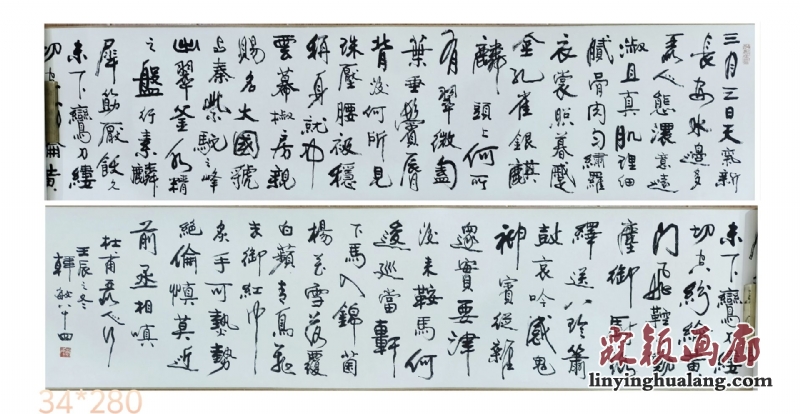 三月三日天氣新
長安水邊多
麗人態濃意遠
淑且真肌理細
膩骨肉勻繡羅
衣裳照暮春蹙
金孔雀銀麒
麟頭上何所
有翠微㔩
葉垂鬢唇
背後何所見
珠壓腰衱穩
稱身就中
雲幕椒房親
賜名大國虢
與秦紫駝之峰
出翠釜水精
之盤行素鱗
犀箸厭飫久
未下鸞刀縷
切空紛綸黃
未下鸞刀縷
切空紛綸黃
門飛鞚
塵御
繹送八珍簫
鼓哀吟感鬼
神賓從雜
遝實要津
後來鞍馬何
逡巡當軒
下馬入錦茵
楊花雪落覆
白蘋青鳥飛
去銜紅巾
炙手可熱勢
絕倫慎莫近
前丞相嗔
杜甫麗人行
壬辰之冬
韓敏八十四
霖颖画廊
linyinghualang.com
34*280